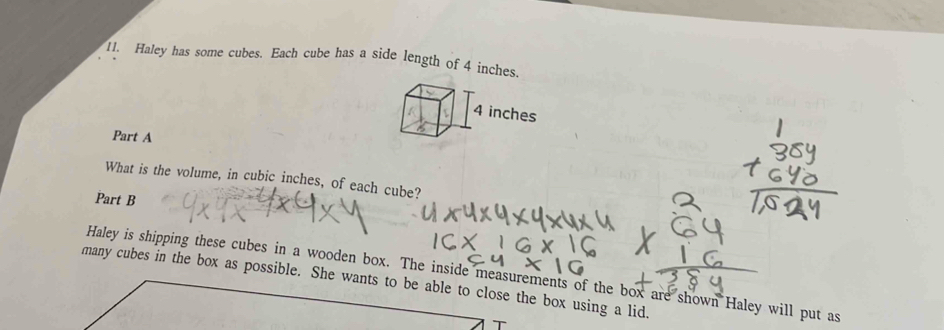 11. Haley has some cubes. Each cube has a side length of 4 inches.
4 inches
Part A
What is the volume, in cubic inches, of each cube?
4x4x4x4x4
4x4x4x4x4x4
16x 16x16
64 x 16
2
64
x 16
+ 384
1
384
+ 640
1,024
Part B
Haley is shipping these cubes in a wooden box. The inside measurements of the box are shown Haley will put as
many cubes in the box as possible. She wants to be able to close the box using a lid.